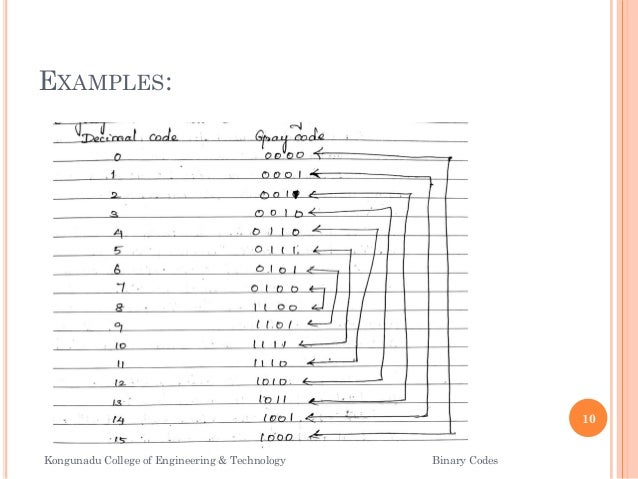 EXAMPLES:
Decimal code Gray code
0 0000
1 0001
2 0011
3 0010
4 0110
5 0111
6 0101
7 0100
8 1100
9 1101
10 1111
11 1110
12 1010
13 1011
14 1001
15 1000
10
Kongunadu College of Engineering & Technology Binary Codes